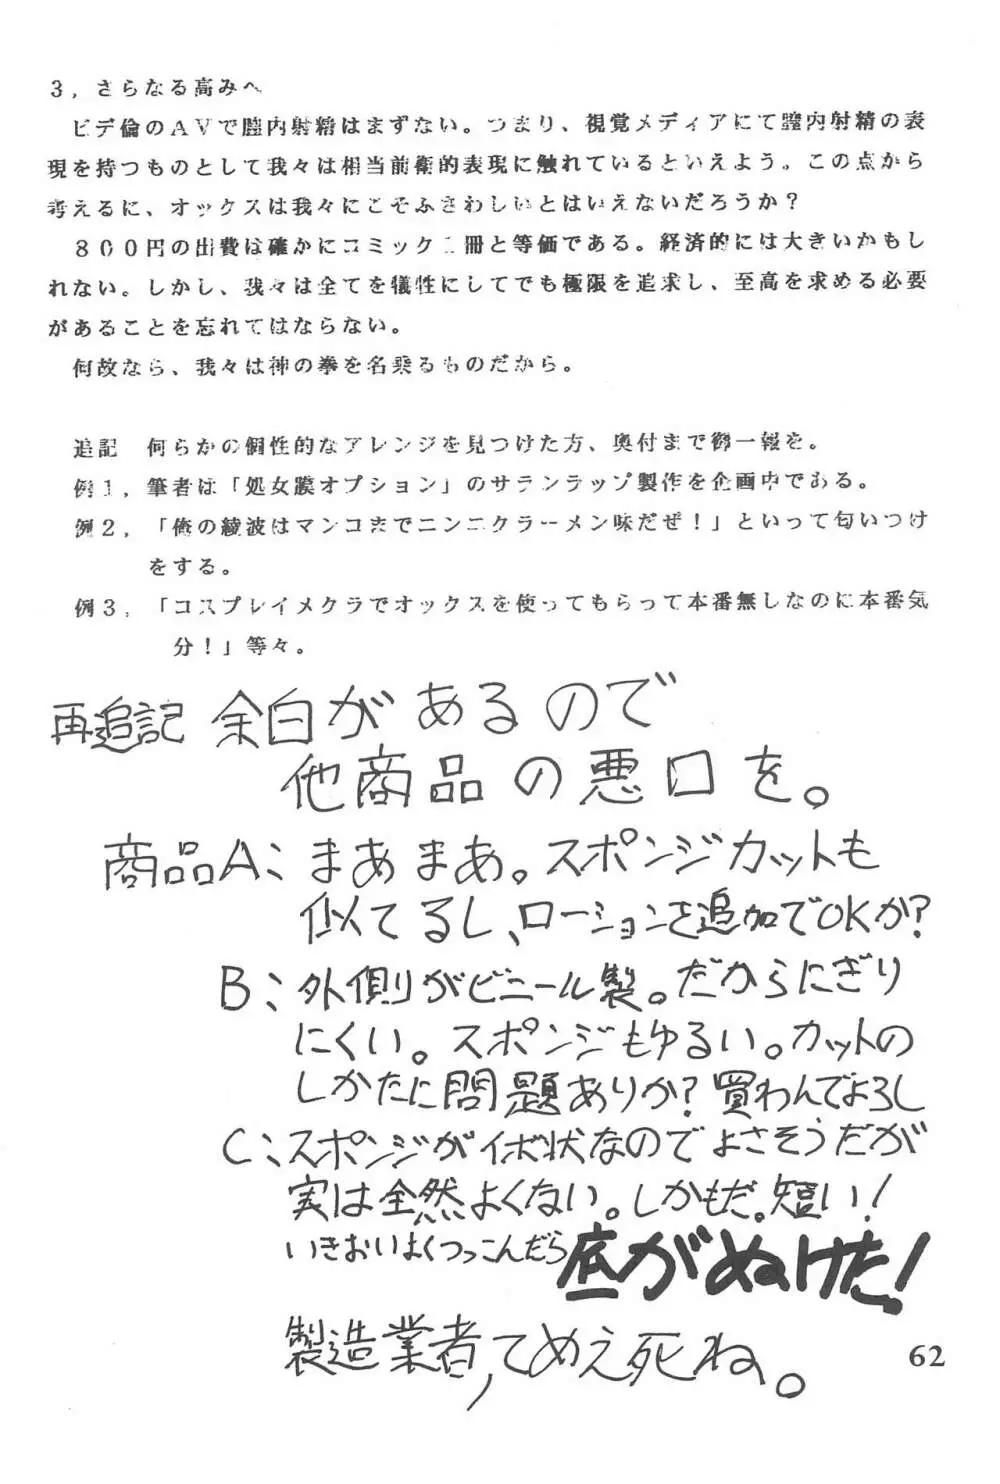 3，さらなる高みへ
ビデ倫のAVで膣内射精はまずない。つまり、視覚メディアにて膣内射精の表
現を持つものとして我々は相当前衛的表現に触れているといえよう。この点から
考えるに、オックスは我々にこそふさわしいとはいえないだろうか？
800円の出費は確かにコミック二冊と等価である。経済的には大きいかもし
れない。しかし、我々は全てを犠牲にしてでも極限を追求し、至高を求める必要
があることを忘れてはならない。
何故なら、我々は神の拳を名乗るものだから。
追記　何らかの個性的なアレンジを見つけた方、奥付まで御一報を。
例1，筆者は「処女膜オプション」のサランラップ製作を企画中である。
例3，「コスプレイメクラでオックスを使ってもらって本番無しなのに本番気
分！」等々。
再追記 余白があるので
他商品の悪口を。
商品A：まあまあ。スポンジカットも
似てるし、ローションを追加でOKか？
B：外側がビニール製。だからにぎり
にくい。スポンジもゆるい。カットの
しかたに問題ありか？買わんでよろし
C：スポンジがイボ状なのでよさそうだが
実は全然よくない。しかもだ。短い！
いきおいよくつっこんだら底がぬけた！
製造業者，てめえ死ね。
62